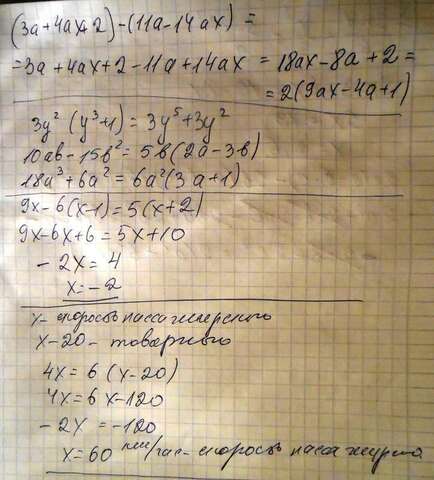 (3a+4ax+2)-(11a-14ax)=
=3a+4ax+2-11a+14ax = 18ax-8a+2=
=2(9ax-4a+1)
3y²(y³+1)=3y⁵+3y²
10ab-15b²=5b(2a-3b)
18a³+6a²=6a²(3a+1)
9x-6(x-1)=5(x+2)
9x-6x+6=5x+10
-2x=4
x=-2
x- скорость пассажирского
x-20- товарного
4x=6(x-20)
4x=6x-120
-2x=-120
x=60 км/час- скорость